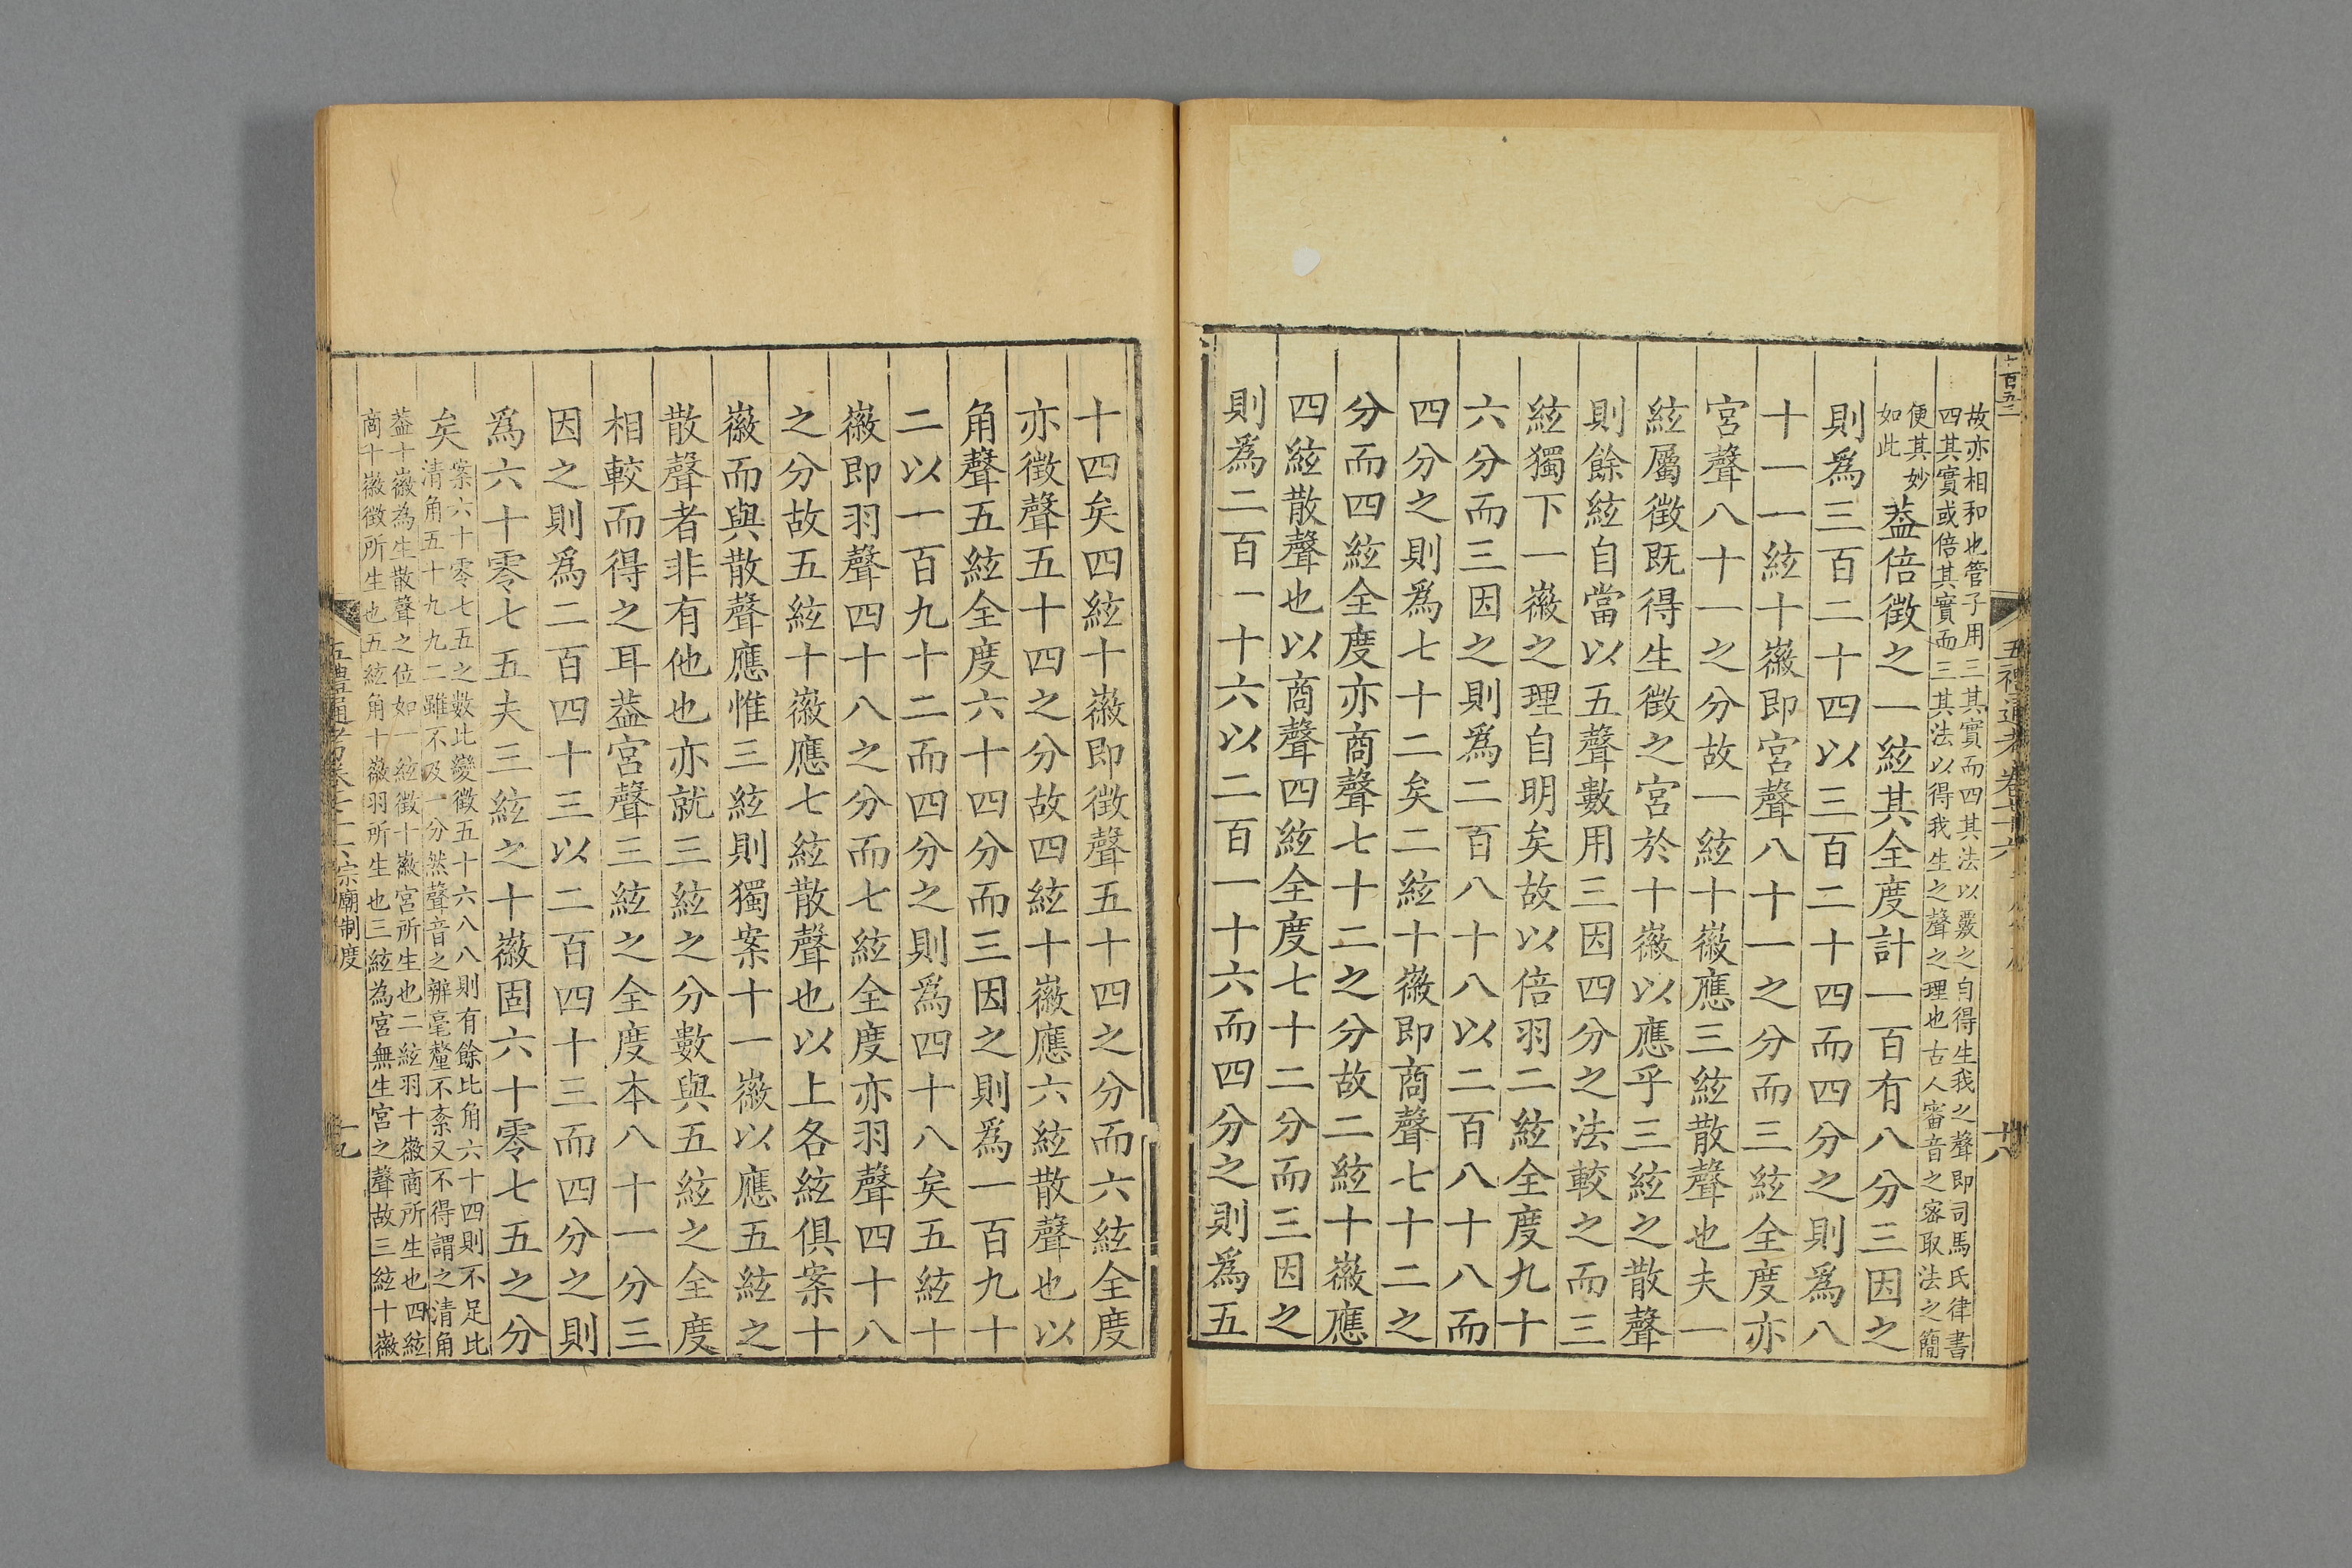 故亦相和也管子用三其實而四其法以覈之自得生我之聲即司馬氏律書
四其實或倍其實而三其法以得我生之聲之理也古人審音之密取法之簡
便其妙
如此
葢倍徴之一絃其全度計一百有八分三因之
則爲三百二十四以三百二十四而四分之則爲八
十一一絃十徽即宮聲八十一之分而三絃全度亦
宮聲八十一之分故一絃十徽應三絃散聲也夫一
絃屬徴既得生徴之宮於十徽以應乎三絃之散聲
則餘絃自當以五聲數用三因四分之法較之而三
絃獨下一徽之理自明矣故以倍羽二絃全度九十
六分而三因之則爲二百八十八以二百八十八而
四分之則爲七十二矣二絃十徽即商聲七十二之
分而四絃全度亦商聲七十二之分故二絃十徽應
四絃散聲也以商聲四絃全度七十二分而三因之
則爲二百一十六以二百一十六而四分之則爲五
十四矣四絃十徽即徴聲五十四之分而六絃全度
亦徴聲五十四之分故四絃十徽應六絃散聲也以
角聲五絃全度六十四分而三因之則爲一百九十
二以一百九十二而四分之則爲四十八矣五絃十
徽即羽聲四十八之分而七絃全度亦羽聲四十八
之分故五絃十徽應七絃散聲也以上各絃俱案十
徽而與散聲應惟三絃則獨案十一徽以應五絃之
散聲者非有他也亦就三絃之分數與五絃之全度
相較而得之耳葢宮聲三絃之全度本八十一分三
因之則爲二百四十三以二百四十三而四分之則
爲六十零七五夫三絃之十徽固六十零七五之分
矣
案六十零七五之數比變徴五十六八八則有餘比角六十四則不足比
清角五十九九二雖不及一分然聲音之辨毫釐不紊又不得謂之清角
葢十徽為生散聲之位如一絃徴十徽宮所生也二絃羽十徽商所生也四絃
商十徽徴所生也五絃角十徽羽所生也三絃為宮無生宮之聲故三絃十徽
五禮通考卷七十六
宗廟制度